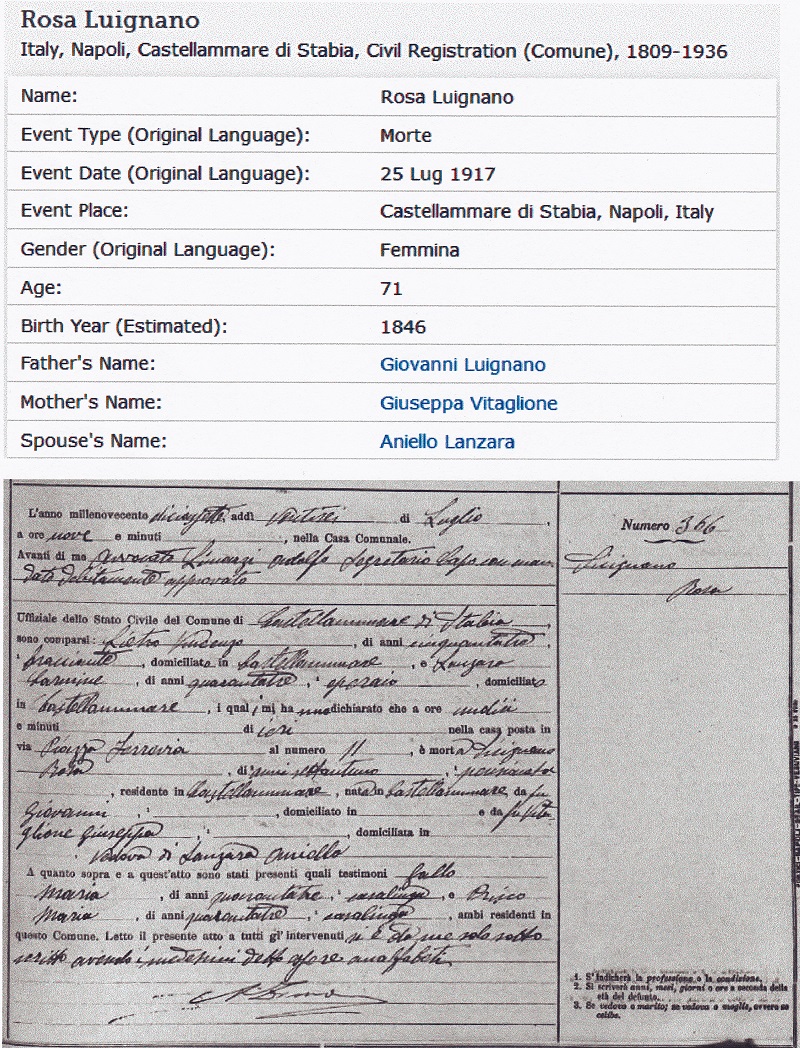 Rosa Luignano
Italy, Napoli, Castellammare di Stabia, Civil Registration (Comune), 1809-1936
Name: Rosa Luignano
Event Type (Original Language): Morte
Event Date (Original Language): 25 Lug 1917
Event Place: Castellammare di Stabia, Napoli, Italy
Gender (Original Language): Femmina
Age: 71
Birth Year (Estimated): 1846
Father's Name: Giovanni Luignano
Mother's Name: Giuseppa Vitaglione
Spouse's Name: Aniello Lanzara
L'anno millenovecento diciassette, addì ventisei di Luglio,
a ore nove e minuti , nella Casa Comunale.
Avanti di me Avvocato Adolfo Segretario Capo con man
dato debitamente approvato
Uffiziale dello Stato Civile del Comune di Castellammare di Stabia,
sono comparsi: Pietro Vincenzo, di anni cinquantatre,
bracciante, domiciliato in Castellammare, e Lanzara
Carmine, di anni quarantatre, operaio, domiciliato
in Castellammare, i quali mi hanno dichiarato che a ore undici
e minuti di ieri nella casa posta in
via Piazza Ferrovia al numero 11, è morta Luignano
Rosa, di anni settantuno, pensionata
, residente in Castellammare, nata in Castellammare, da fu
Giovanni, , domiciliato in e da fu Vita
glione Giuseppa, , domiciliata in
vedova di Lanzara Aniello
A quanto sopra e a quest'atto sono stati presenti quali testimoni Gallo
Maria, di anni quarantatre, casalinga, e Prisco
Maria, di anni quarantatre, casalinga, ambi residenti in
questo Comune. Letto il presente atto a tutti gl'intervenuti si è da me solo sotto
scritto avendo i medesimi detto essere analfabeti.
Numero 366
Luignano
Rosa
1. S'indicherà la professione o la condizione.
2. Si scriverà anni, mesi, giorni o ore a seconda della
età del defunto.
3. Se vedovo o marito; se vedova o moglie, ovvero se
celibe.